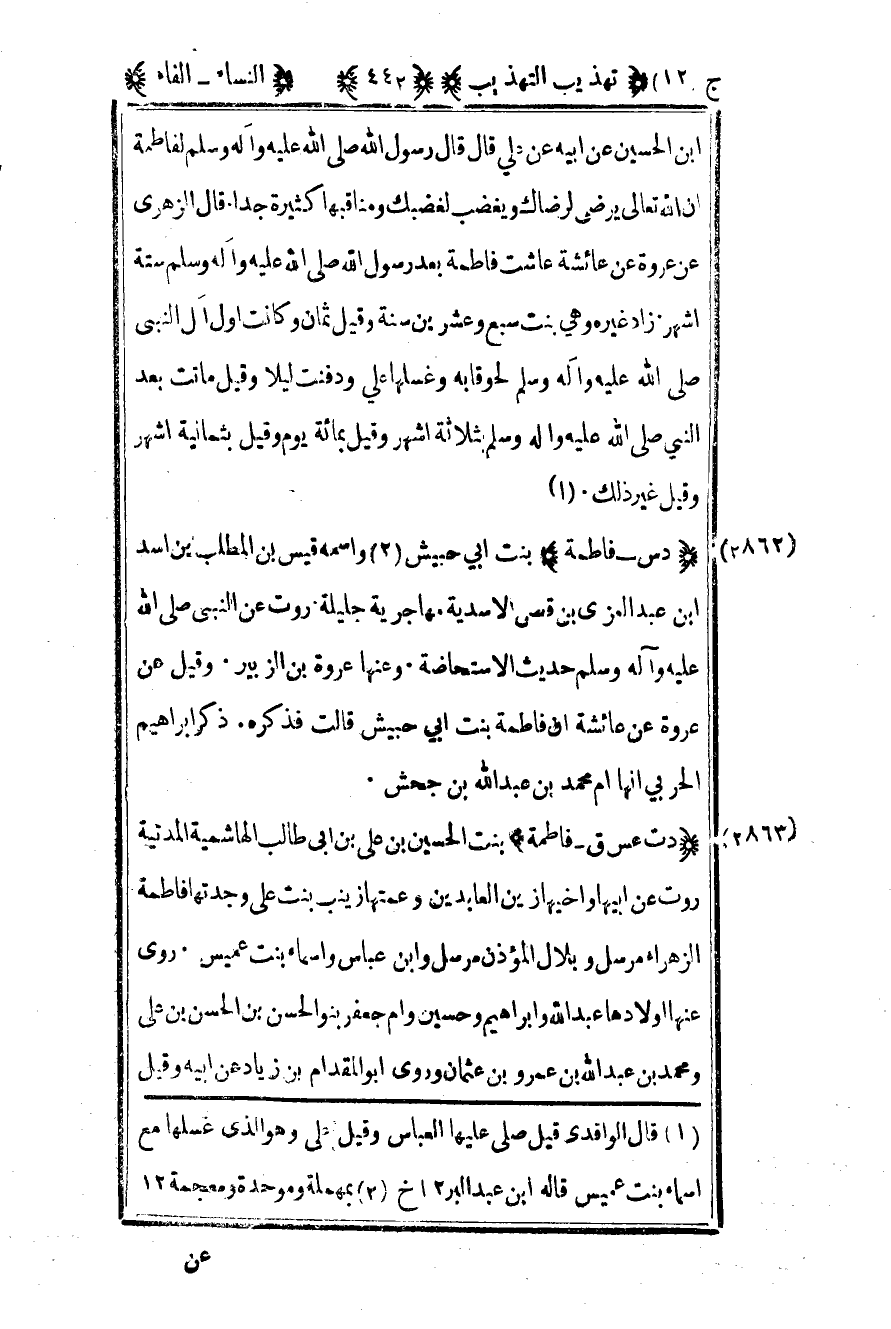 ج (١٢) ﴿ تهذيب التهذيب ﴾ ﴿ ٤٤٢ ﴾ ﴿ النساء ـ الفاء ﴾
ابن الحسين عن ابيه عن علي قال قال رسول الله صلى الله عليه وآله وسلم لفاطمة
ان الله تعالى يرضى لرضاك ويغضب لغضبك ومناقبها كثيرة جدا . قال الزهرى
عن عروة عن عائشة عاشت فاطمة بعد رسول الله صلى الله عليه وآله وسلم ستة
اشهر . زاد غيره وهي بنت سبع وعشرين سنة وقيل ثمان وكانت اول آل النبى
صلى الله عليه وآله وسلم لحوقا به وغسلها علي ودفنت ليلا وقيل ماتت بعد
النبي صلى الله عليه واله وسلم بثلاثة اشهر وقيل بمائة يوم وقيل بثمانية اشهر
وقيل غير ذلك . (١)
(٢٨٦٢) ﴿ دس ـ فاطمة ﴾ بنت ابي حبيش (٢) واسمه قيس بن المطلب بن اسد
ابن عبد العزى بن قصي الاسدية . مهاجرية جليلة . روت عن النبى صلى الله
عليه وآله وسلم حديث الاستحاضة . وعنها عروة بن الزبير . وقيل عن
عروة عن عائشة ان فاطمة بنت ابي حبيش قالت فذكره . ذكر ابراهيم
الحربي انها ام محمد بن عبدالله بن جحش .
(٢٨٦٣) ﴿ دت عس ق ـ فاطمة ﴾ بنت الحسين بن على بن ابى طالب الهاشمية المدنية
روت عن ابيها واخيها زين العابدين وعمتها زينب بنت على وجدتها فاطمة
الزهراء مرسل وبلال المؤذن مرسل وابن عباس واسماء بنت عميس . روى
عنها اولادها عبدالله وابراهيم وحسين وام جعفر بنو الحسن بن الحسن بن على
ومحمد بن عبدالله بن عمرو بن عثمان وروى ابوالمقدام بن زياد عن ابيه وقيل
(١) قال الواقدى قيل صلى عليها العباس وقيل علي وهو الذى غسلها مع
اسماء بنت عميس قاله ابن عبدالبر ١٢ خ (٢) بمهملة وموحدة ومعجمة ١٢
عن